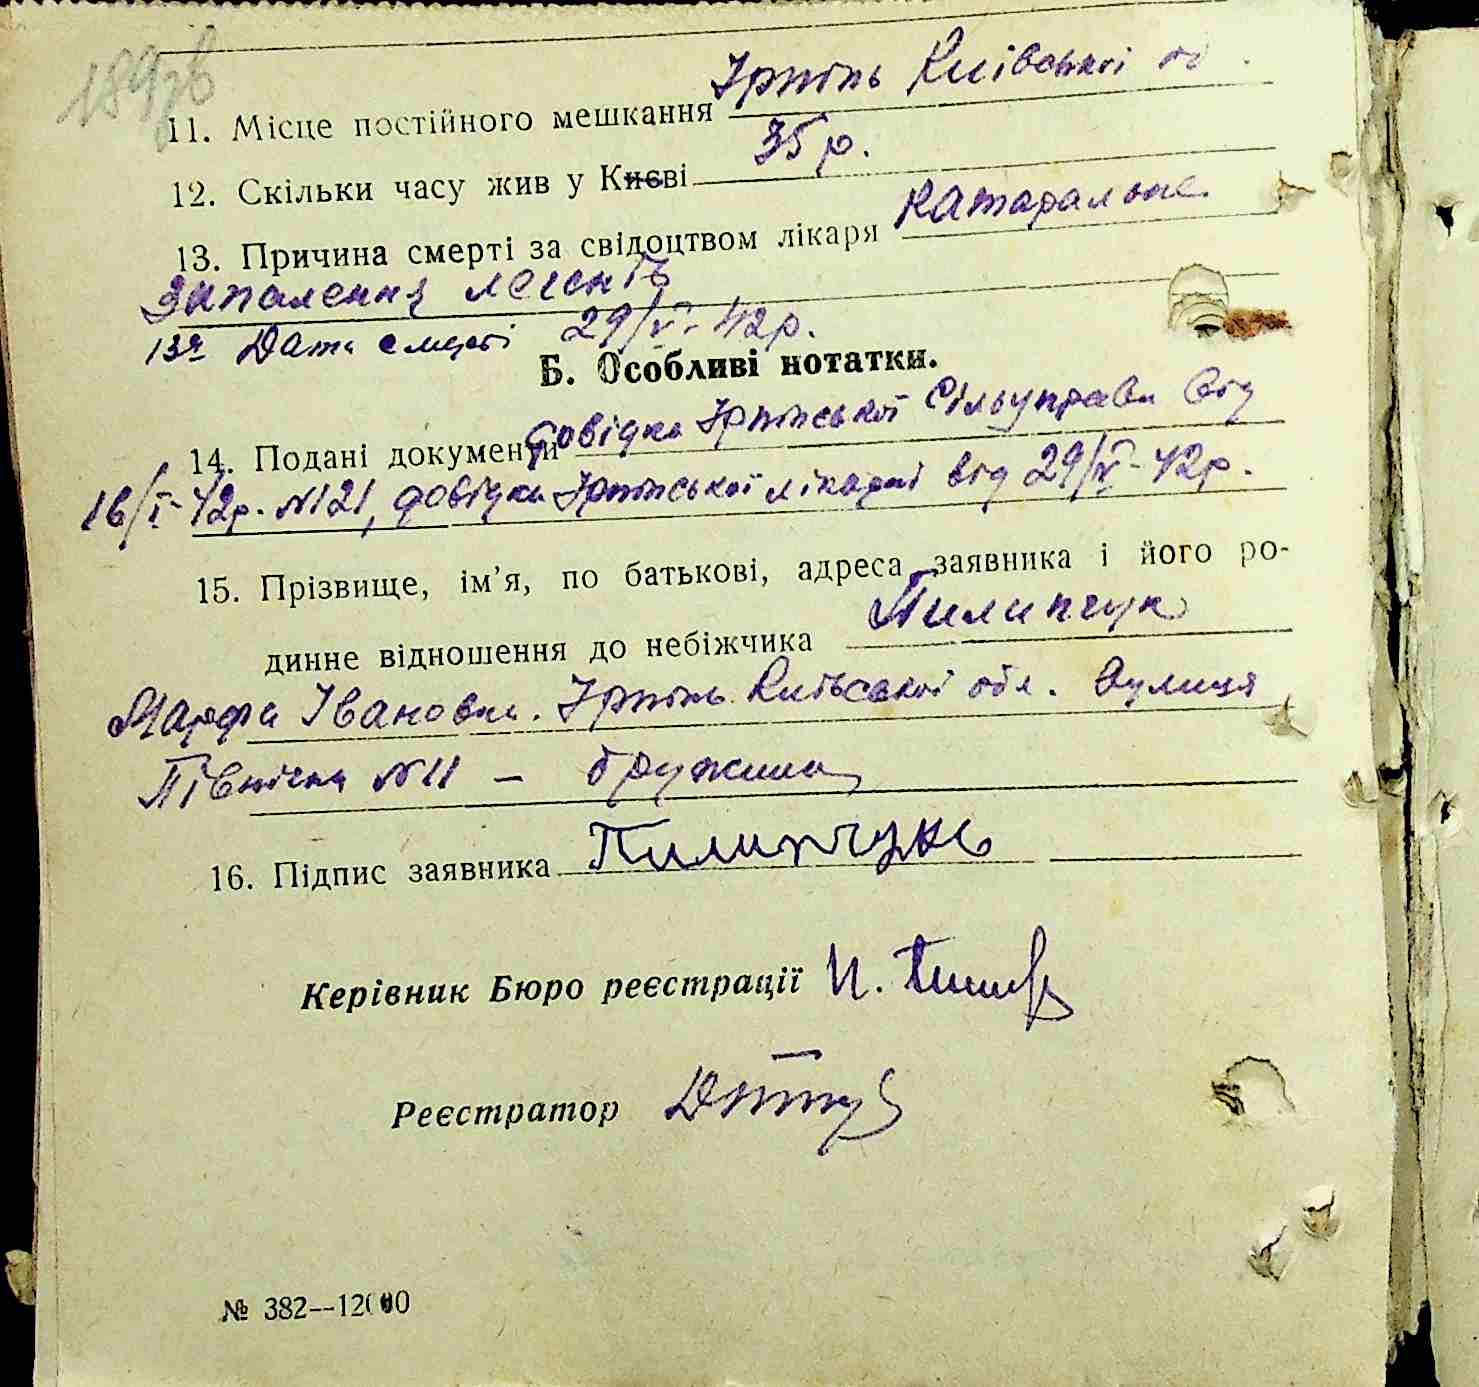 189 зв
11. Місце постійного мешкання Ірпінь Київської об.
12. Скільки часу жив у Києві 35 р.
13. Причина смерті за свідоцтвом лікаря катаральне
запалення легенів
13а Дата смерті 29/V- 42р.
Б. Особливі нотатки.
14. Подані документи довідка Ірпінської Сільуправи від
16/I- 42р. №121, довідка Ірпінської лікарні від 29/V- 42р.
15. Прізвище, ім'я, по батькові, адреса заявника і його ро-
динне відношення до небіжчика Пилипчук
Марфа Івановна. Ірпінь Київської обл. вулиця
Північна №11 — дружина
16. Підпис заявника Пилипчукь
Керівник Бюро реєстрації
Реєстратор
№ 382--12000